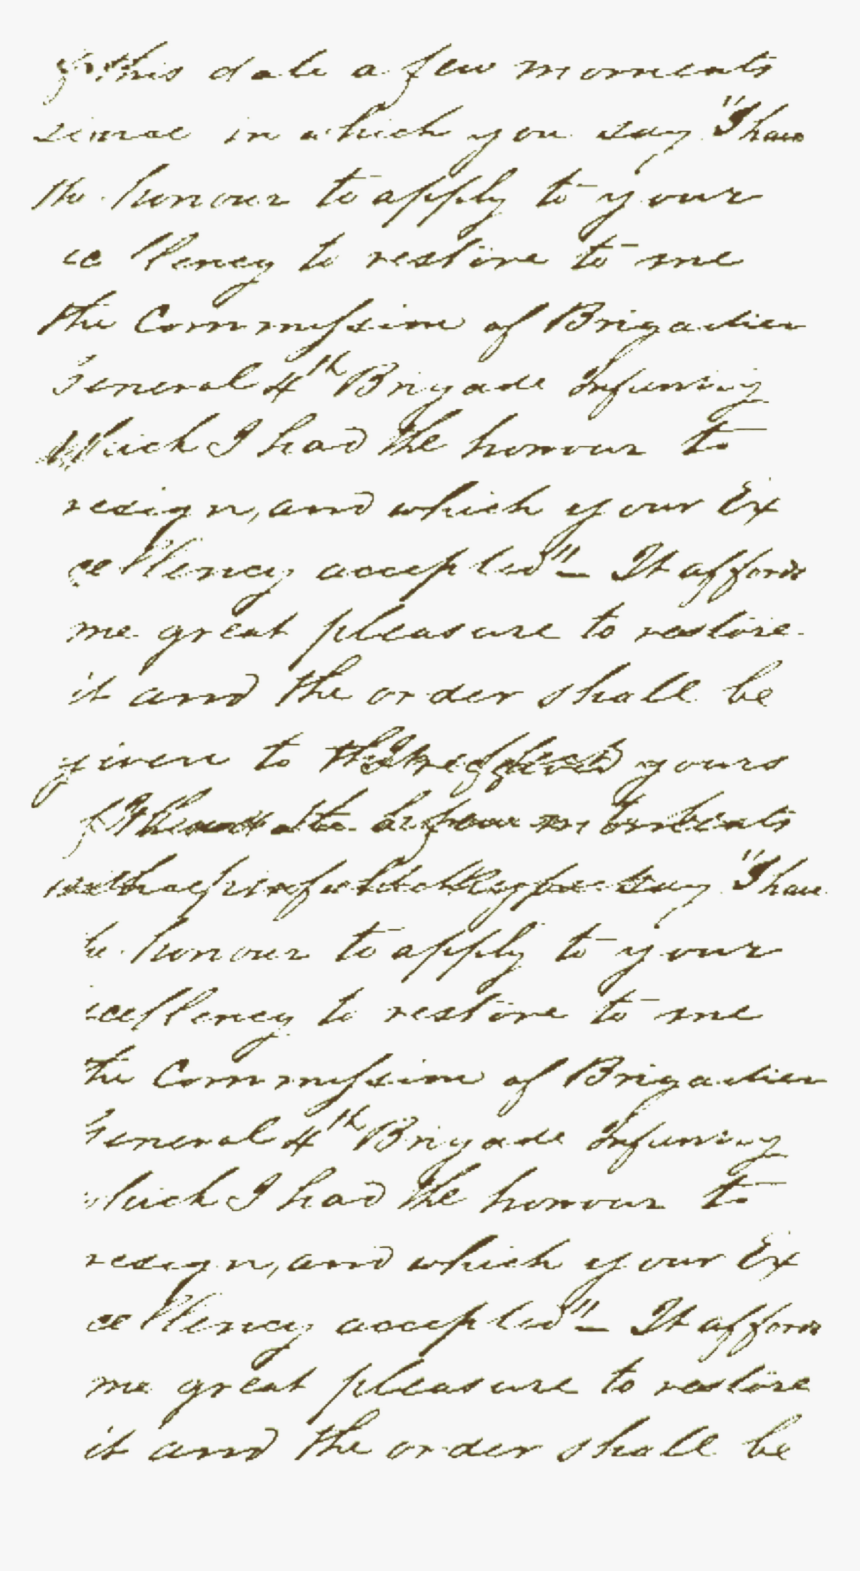 of this date a few moments
since in which you say "I have
the honour to apply to your
ce llency to restore to me
the Commission of Brigadier
General 4th Brigade Infantry
which I had the honour to
resign, and which your Ex
cellency accepted" — It affords
me great pleasure to restore
it and the order shall be
given to yours
moments
say "I have
the honour to apply to your
cellency to restore to me
the Commission of Brigadier
General 4th Brigade Infantry
which I had the honour to
resign, and which your Ex
cellency accepted" — It affords
me great pleasure to restore
it and the order shall be